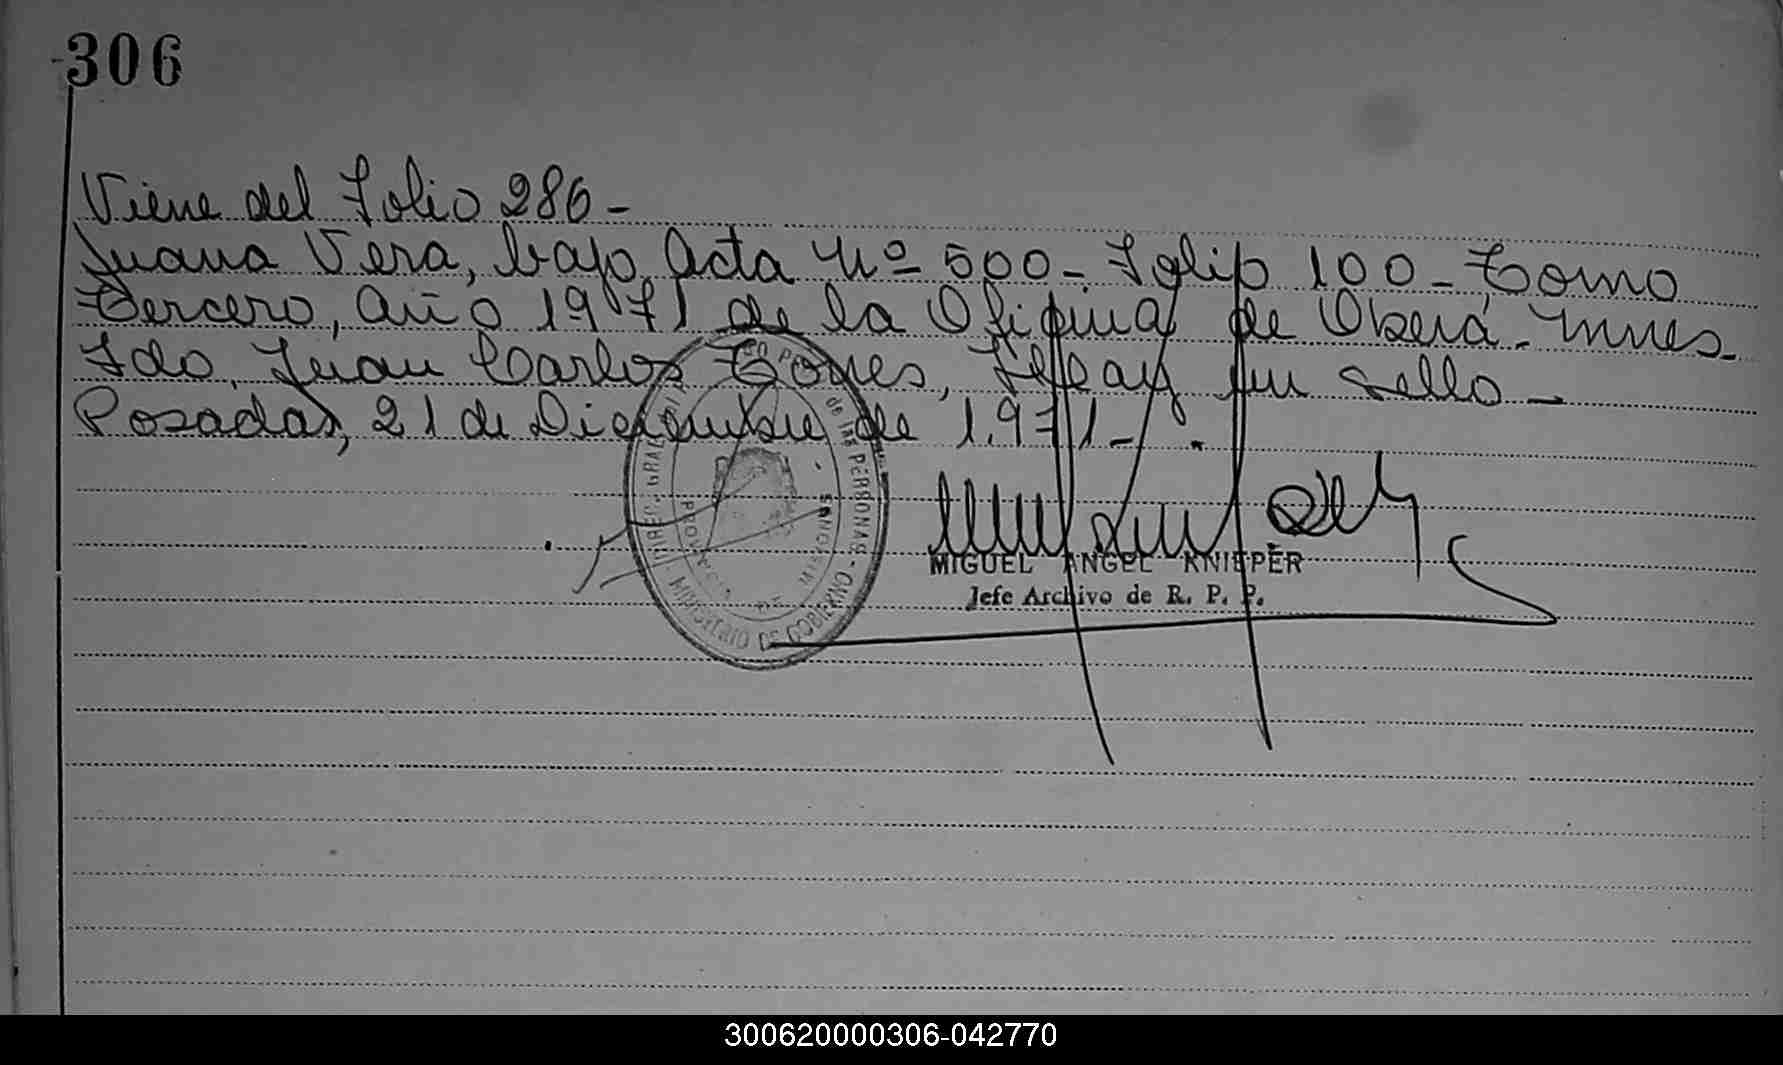 306
Viene del Folio 286-
Juana Vera, bajo Acta Nº 500- Folio 100- Tomo
Tercero, Año 1971 de la Oficina de Oberá-
Fdo. Juan Carlos Torres, Hay un sello-
Posadas, 21 de Diciembre de 1.971-
de las PERSONAS -
MINISTERIO DE GOBIERNO
MISIONES
MIGUEL ANGEL KNIEPER
Jefe Archivo de R. P. P.
300620000306-042770